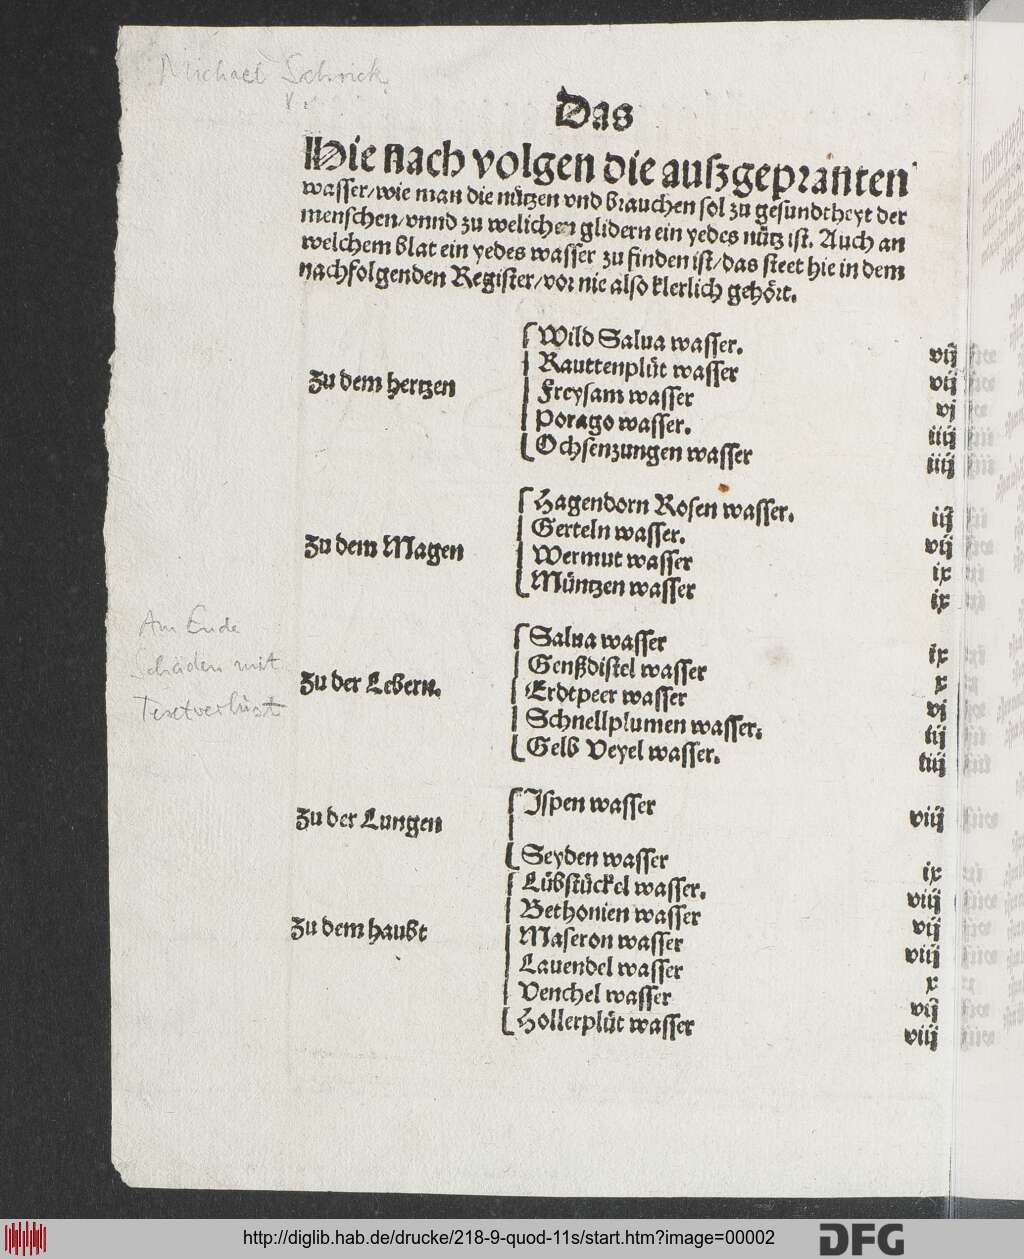 Michael Schrick
Das
Hie nach volgen die außgepranten
wasser/wie man die nützen vnd brauchen sol zu gesundtheyt der
menschen/vnnd zu welichen glidern ein yedes nütz ist. Auch an
welchem blat ein yedes wasser zu finden ist/das steet hie in dem
nachfolgenden Register/vor nie also klerlich gehört.
Wild Salua wasser. vij
Rauttenplüt wasser vij
Zu dem hertzen
Freysam wasser vj
Porago wasser. iiij
Ochsenzungen wasser iiij
Hagendorn Rosen wasser. iij
Gerteln wasser. vij
Zu dem Magen
Wermut wasser ix
Müntzen wasser ix
Am Ende
Schäden mit
Textverlust
Salua wasser ix
Genßdistel wasser x
Zu der Lebern.
Erdtpeer wasser vj
Schnellplumen wasser. iij
Gelb Veyel wasser. iiij
Zu der Lungen
Ispen wasser viij
Seyden wasser ix
Lübstückel wasser. viij
Bethonien wasser vij
Zu dem haubt
Maseron wasser viij
Lauendel wasser x
Venchel wasser vij
Hollerplüt wasser viij
http://diglib.hab.de/drucke/218-9-quod-11s/start.htm?image=00002
DFG